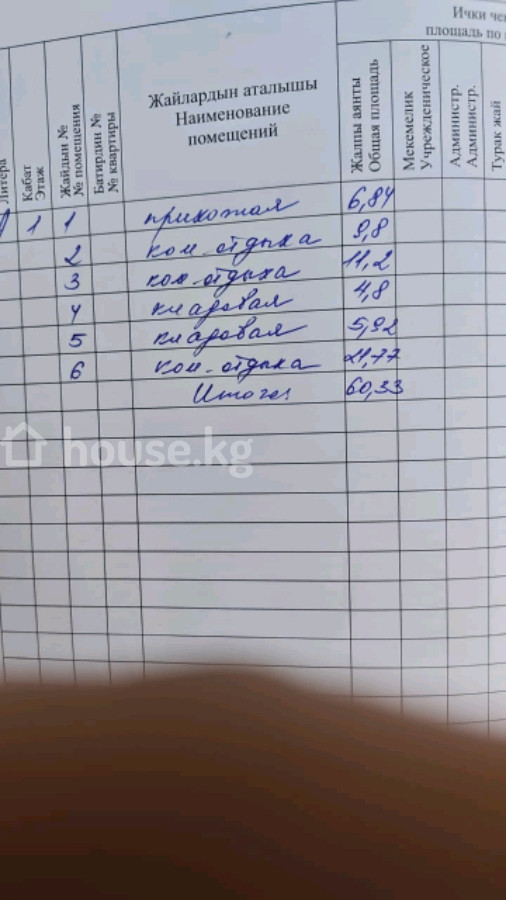 Ички
площадь по
Литера
Кабат
Этаж
Жайдын №
№ помещения
Батирдин №
№ квартиры
Жайлардын аталышы
Наименование
помещений
Жалпы аянты
Общая площадь
Мекемелик
Учрежденическое
Администр.
Администр.
Турак жай
1 1 прихожая 6,84
2 ком. отдыха 9,8
3 ком. отдыха 11,2
4 кладовая 4,8
5 кладовая 5,92
6 ком. отдыха 21,77
Итого 60,33
house.kg